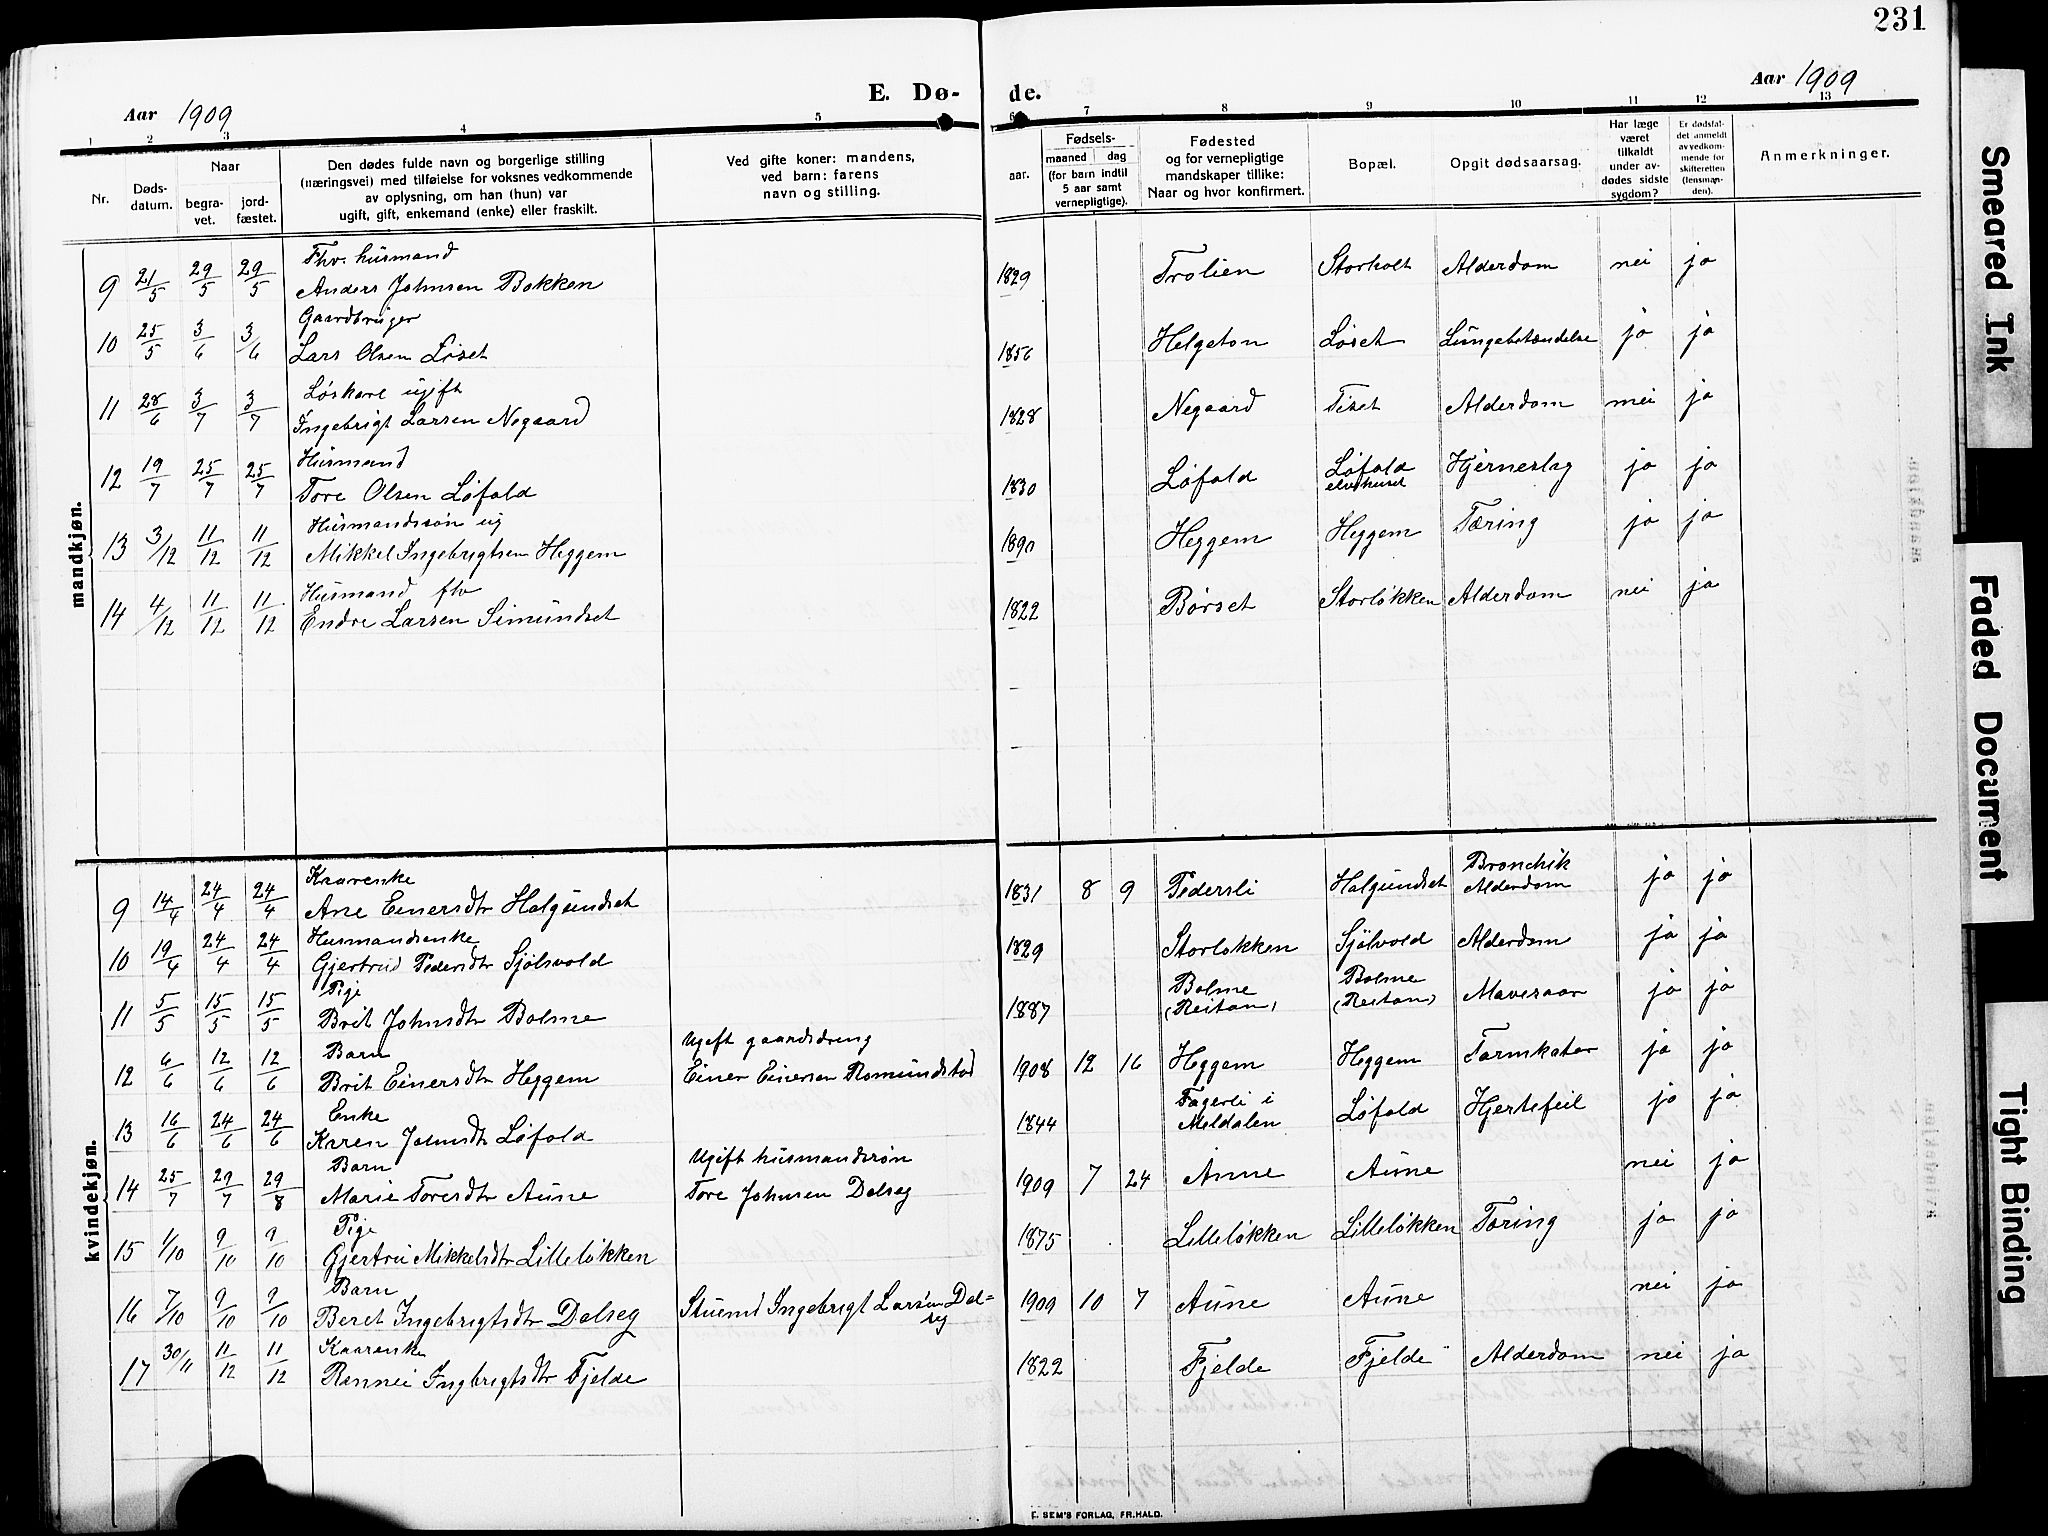 231
Aar 1909
E. Dø-
de.
Aar 1909
1 2 3 4 5 6 7 8 9 10 11 12 13
Nr.
Døds-
datum.
Naar
begra-
vet.
jord-
fæstet.
Den dødes fulde navn og borgerlige stilling
(næringsvei) med tilføielse for voksnes vedkommende
av oplysning, om han (hun) var
ugift, gift, enkemand (enke) eller fraskilt.
Ved gifte koner: mandens,
ved barn: farens
navn og stilling.
aar.
Fødsels-
maaned dag
(for barn indtil
5 aar samt
vernepligtige).
Fødested
og for vernepligtige
mandskaper tillike:
Naar og hvor konfirmert.
Bopæl.
Opgit dødsaarsag.
Har læge
været
tilkaldt
under av-
dødes sidste
sygdom?
Er dødsfal-
det anmeldt
av vedkom-
mende for
skifteretten
(lensman-
den).
Anmerkninger.
mandkjøn.
Fhv. husmand
9 21/5 29/5 29/5 Anders Johnsen Bakken 1829 Trolien Storholt Alderdom nei ja
Gaardbruger
10 25/5 3/6 3/6 Lars Olsen Løset 1856 Helgeton Løset Lungebetændelse ja ja
Løskarl ugift
11 28/6 3/7 3/7 Ingebrigt Larsen Negaard 1828 Negaard Tiset Alderdom nei ja
Husmand
12 19/7 25/7 25/7 Tore Olsen Løfald 1830 Løfald Løfald Hjerneslag ja ja
elvehuset
Husmandssøn ug
13 3/12 11/12 11/12 Mikkel Ingebrigtsen Heggem 1890 Heggem Heggem Tæring ja ja
Husmand fhv
14 4/12 11/12 11/12 Endre Larsen Simundset 1822 Børset Storløkken Alderdom nei ja
kvindekjøn.
Kaarenke Bronchik
9 14/4 24/4 24/4 Ane Einersdtr Halgundset 1831 8 9 Pedersli Halgundset Alderdom ja ja
Husmandsenke
10 19/4 24/4 24/4 Gjertrud Pedersdtr Sjølsvold 1829 Storløkken Sjølvold Alderdom ja ja
Pige Bolme Bolme
11 5/5 15/5 15/5 Brit Johnsdtr Bolme 1887 (Reitan) (Reitan) Mavesaar ja ja
Barn Ugift gaardsdreng
12 6/6 12/6 12/6 Brit Einersdtr Heggem Einer Einersen Romundstad 1908 12 16 Heggem Heggem Tarmkatar ja ja
Enke Fagerli i
13 16/6 24/6 24/6 Karen Johnsdtr Løfald 1844 Meldalen Løfald Hjertefeil ja ja
Barn Ugift husmandssøn
14 25/7 29/7 29/8 Marie Toresdtr Aune Tore Johnsen Dalseg 1909 7 24 Aune Aune nei ja
Pige
15 1/10 9/10 9/10 Gjertru Mikkelsdtr Lilleløkken 1875 Lilleløkken Lilleløkken Tæring ja ja
Barn
16 7/10 9/10 9/10 Beret Ingebrigtsdtr Dalseg Stuemd Ingebrigt Larsen Dal= 1909 10 7 Aune Aune nei ja
seg
Kaarenke
17 30/11 11/12 11/12 Rennei Ingbrigtsdtr Fjelde 1822 Fjelde Fjelde Alderdom nei ja
E. SEM'S FORLAG, FR.HALD.
Smeared Ink
Faded Document
Tight Binding